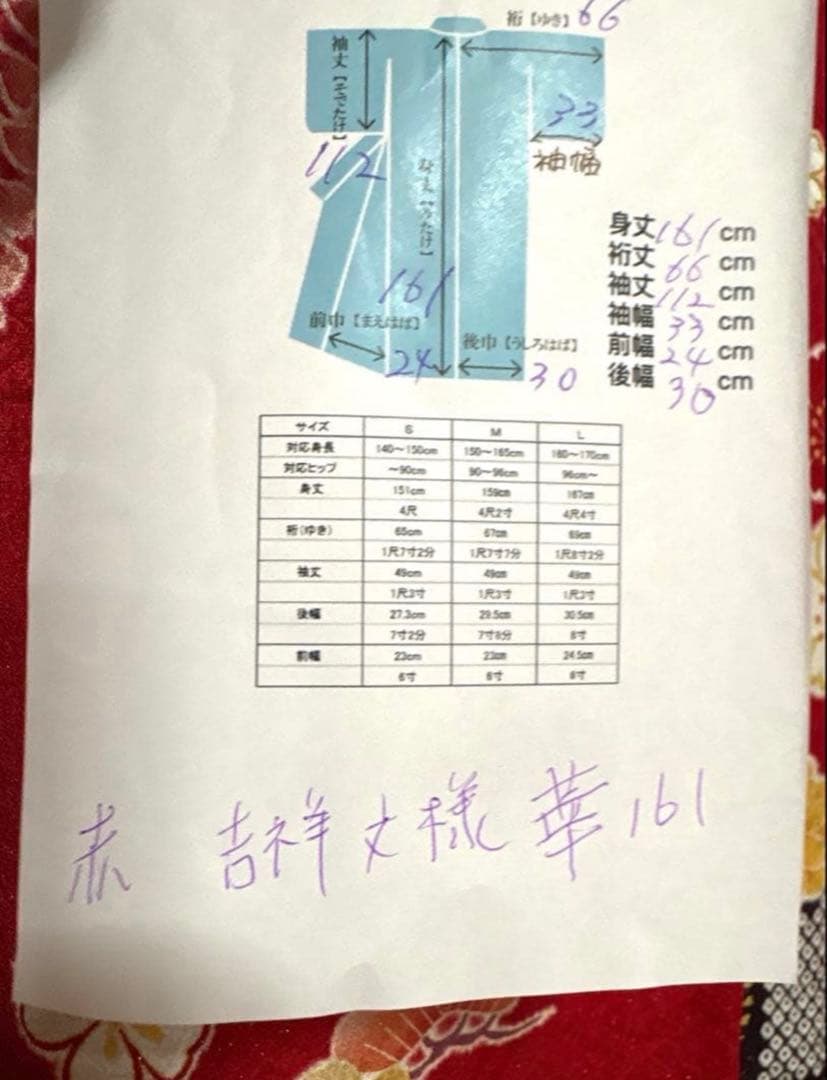 裄【ゆき】66
袖丈【そでたけ】
112
33
袖幅
161
前巾【まえはば】
24
後巾【うしろはば】
30
身丈161cm
裄丈66cm
袖丈112cm
袖幅33cm
前幅24cm
後幅30cm
サイズ S M L
対応身長 140〜150cm 150〜165cm 160〜170cm
対応ヒップ 〜90cm 90〜96cm 96cm〜
身丈 151cm 159cm 167cm
4尺 4尺2寸 4尺4寸
裄(ゆき) 65cm 67cm 69cm
1尺7寸2分 1尺7寸7分 1尺8寸2分
袖丈 49cm 49cm 49cm
1尺3寸 1尺3寸 1尺3寸
後幅 27.3cm 29.5cm 30.5cm
7寸2分 7寸8分 8寸
前幅 23cm 23cm 24.5cm
6寸 6寸 6寸
赤 吉祥文様 華161